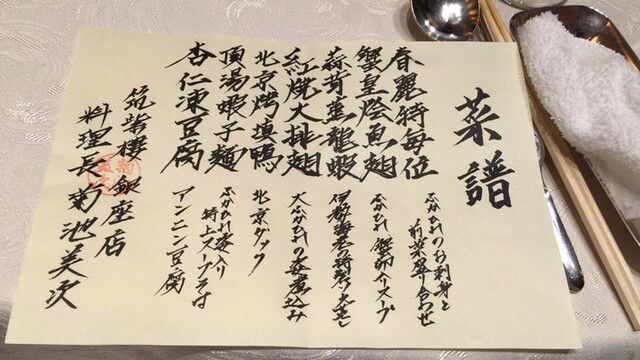 菜譜
春麗特每位
蟹皇燴魚翅
蒜茸蒸龍蝦
紅焼大排翅
北京烤填鴨
頂湯蝦子麺
杏仁凍豆腐
ふかひれのお刺身と
前菜盛り合わせ
ふかひれ蟹卵入りスープ
大ふかひれの姿煮込み
北京ダック
ふかひれ入り
特上スープそば
アンニン豆腐
筑紫樓銀座店
料理長菊池美次